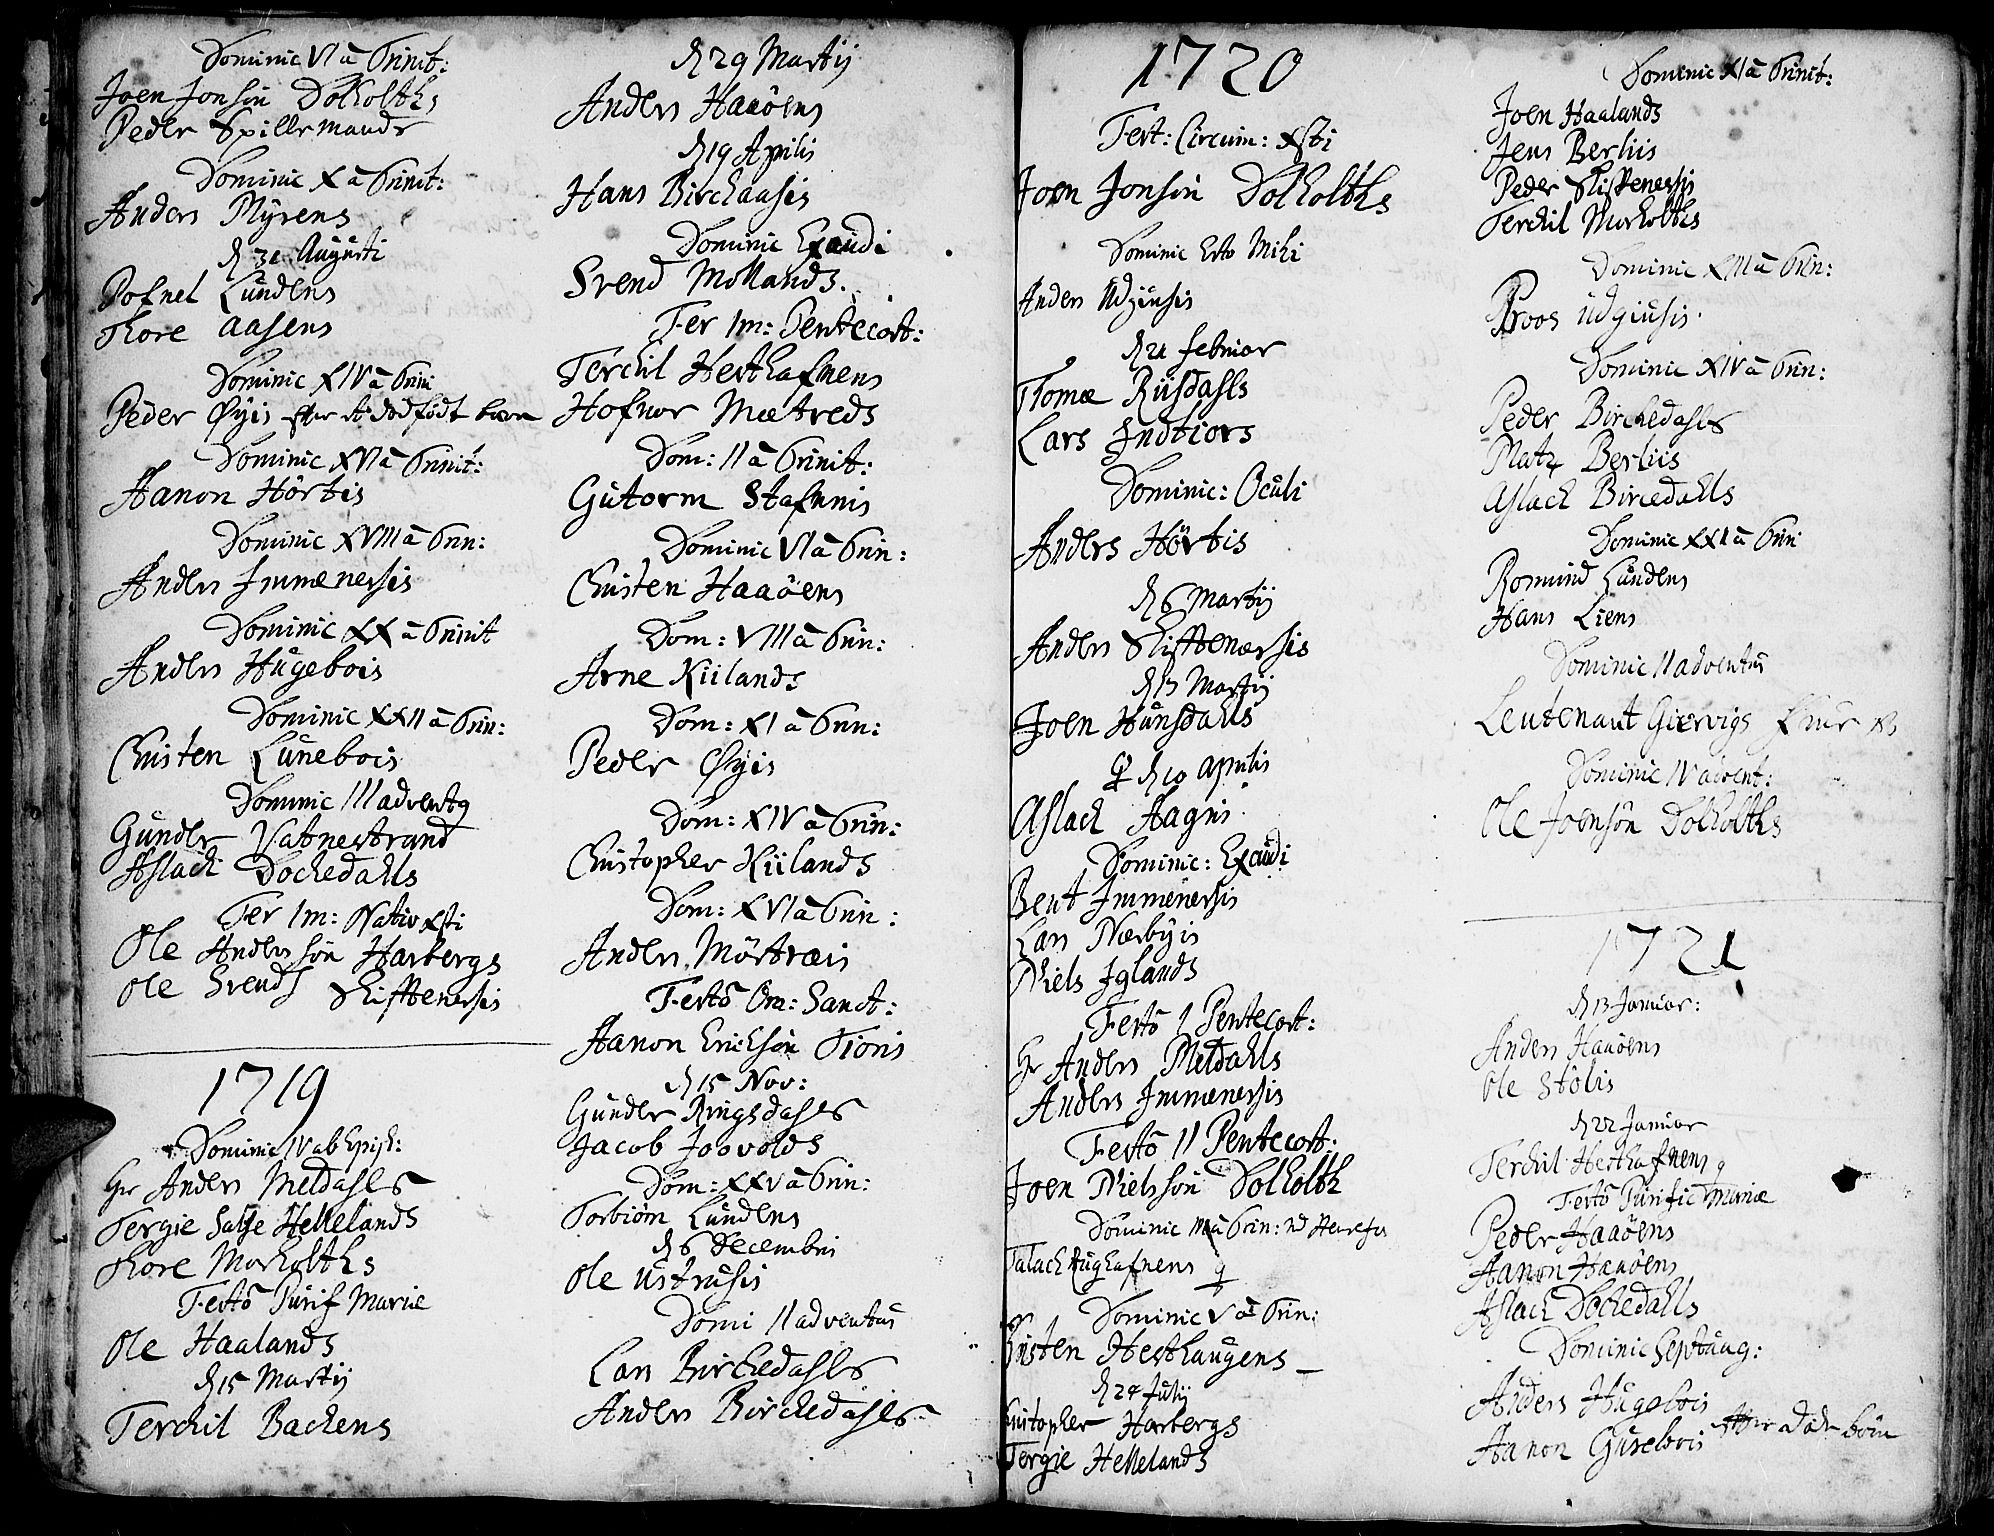 Dominic VI a Trinit:
Joen Jonsøn Dolholths
Peder Spillemands
Dominic X a Trinit:
Anders Myrens
d 31 Augusti
Pofnel Lundens
Thore Aasens
Dominic XIV a Trin:
Peder Øyis efter et dødfødt barn
Dominic XVI a Trinit:
Aanon Hörtis
Dominic XVIII a Trin:
Anders Immenersis
Dominic XX a Trinit
Anders Hugebois
Dominic XXII a Trin:
Christen Lunebois
Dominic III advents
Gunder Vatnestrand
Aslach Dockedahls
Fer 1m: Nativ Xsti
Ole Anderssøn Harbergs
Ole Svends Skifftenersis
1719
Dominic IV ab Epiph:
Hr Anders Meldahls
Tergie Salfe Hellelands
Thore Morholths
Festo Purif Mariæ
Ole Haalands
d 15 Martij
Terchil Backens
d 29 Martij
Anders Haaöens
d 19 Aprilis
Hans Birchaasis
Dominic Exaudi
Svend Mollands.
Fer 1m: Pentecost:
Terchil Hesthafnens
Hofuor Mætreds
Dom: II a Trinit:
Gutorm Stafnnis
Dominic VI a Trin:
Christen Haaöens
Dom: VIII a Trin:
Arne Kiilands
Dom: XI a Trin:
Peder Øyis
Dom: XIV a Trin:
Christopher Kiilands
Dom: XVI a Trin:
Anders Mörtræis
Festo Om: Sanct:
Aanon Erichsøn Tions
d 15 Nov:
Gunder Ringsdahls
Jacob Josvolds
Dom: XXV a Trin:
Torbiörn Lundens
d 6 Decembris
Ole Ustrusis
Domi II adventus
Lars Birchedahls
Anders Birchedahls
1720
Fest: Circum: Xsti
Joen Jonsøn Dolholths
Dominic Esto Mihi
Anders Udziusis
d 21 februar
Thomæ Riisdahls
Lars Indtiors
Dominic: Oculi
Anders Hörtis
d 6 Martij
Anders Skifftenersis
d 13 Martij
Joen Hunsdahls
d 10 Aprilis
Aslach Hagnis
Dominic: Exaudi
Bent Immenersis
Lars Nærbyis
Niels Iglands
Festo 1 Pentecost:
Hr Anders Meldahls
Anders Immenersis
Festo II Pentecost:
Joen Nielssøn Dolholth
Dominic a Trin:
Salach Hughafnens
Dominic V a Trin:
Christen Hesthaugens
d 24 Julij
Christopher Harbergs
Tergie Hellelands
Dominic XI a Trinit:
Joen Haalands
Jens Berliis
Peder Skiftenersis
Terchil Morholths
Dominic XIII a Trin:
Roos Udgiusis
Dominic XIV a Trin:
Peder Birchedahls
Matz Berliis
Aslach Bircedahls
Dominic XXII a Trin
Romund Lundens
Hans Liens
Dominic II adventus
Leutenant Giervigs
Dominic IV advent:
Ole Joensøn Dolholths
1721
d 13 Januar:
Anders Haaöens
Ole Stölis
d 22 Januar
Terchil Hesthafnens
Festo Purific Mariæ
Peder Haaöens
Aanon Haaöens
Aslach Dockedahls
Dominic Septuag:
Anders Hugebois
Aanon Gusebois efter Död börn